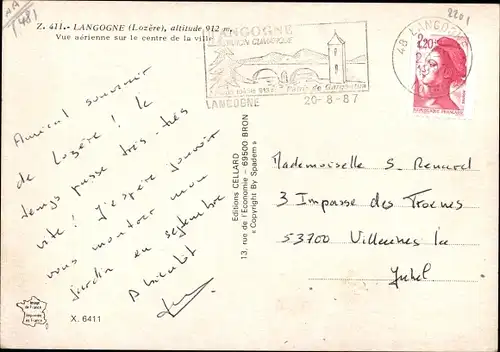 NA
(48)
Z. 411.- LANGOGNE (Lozère), altitude 912 m.
Vue aérienne sur le centre de la ville
LANGOGNE
STATION CLIMATIQUE
LANGOGNE
20-8-87
48 LANGOGNE
2201
2,20
Amical souvenir
de Lozère ! le
temps passe très-très
vite ! J'espère pouvoir
vous montrer mon
jardin en septembre
A bientôt
Editions CELLARD
13, rue de l'Economie - 69500 BRON
« Copyright By Spadem »
Mademoiselle S. Renard
3 Impasse des Troenes
53700 Villaines la
Juhel
Image
de France
Imprimée
en France
X. 6411